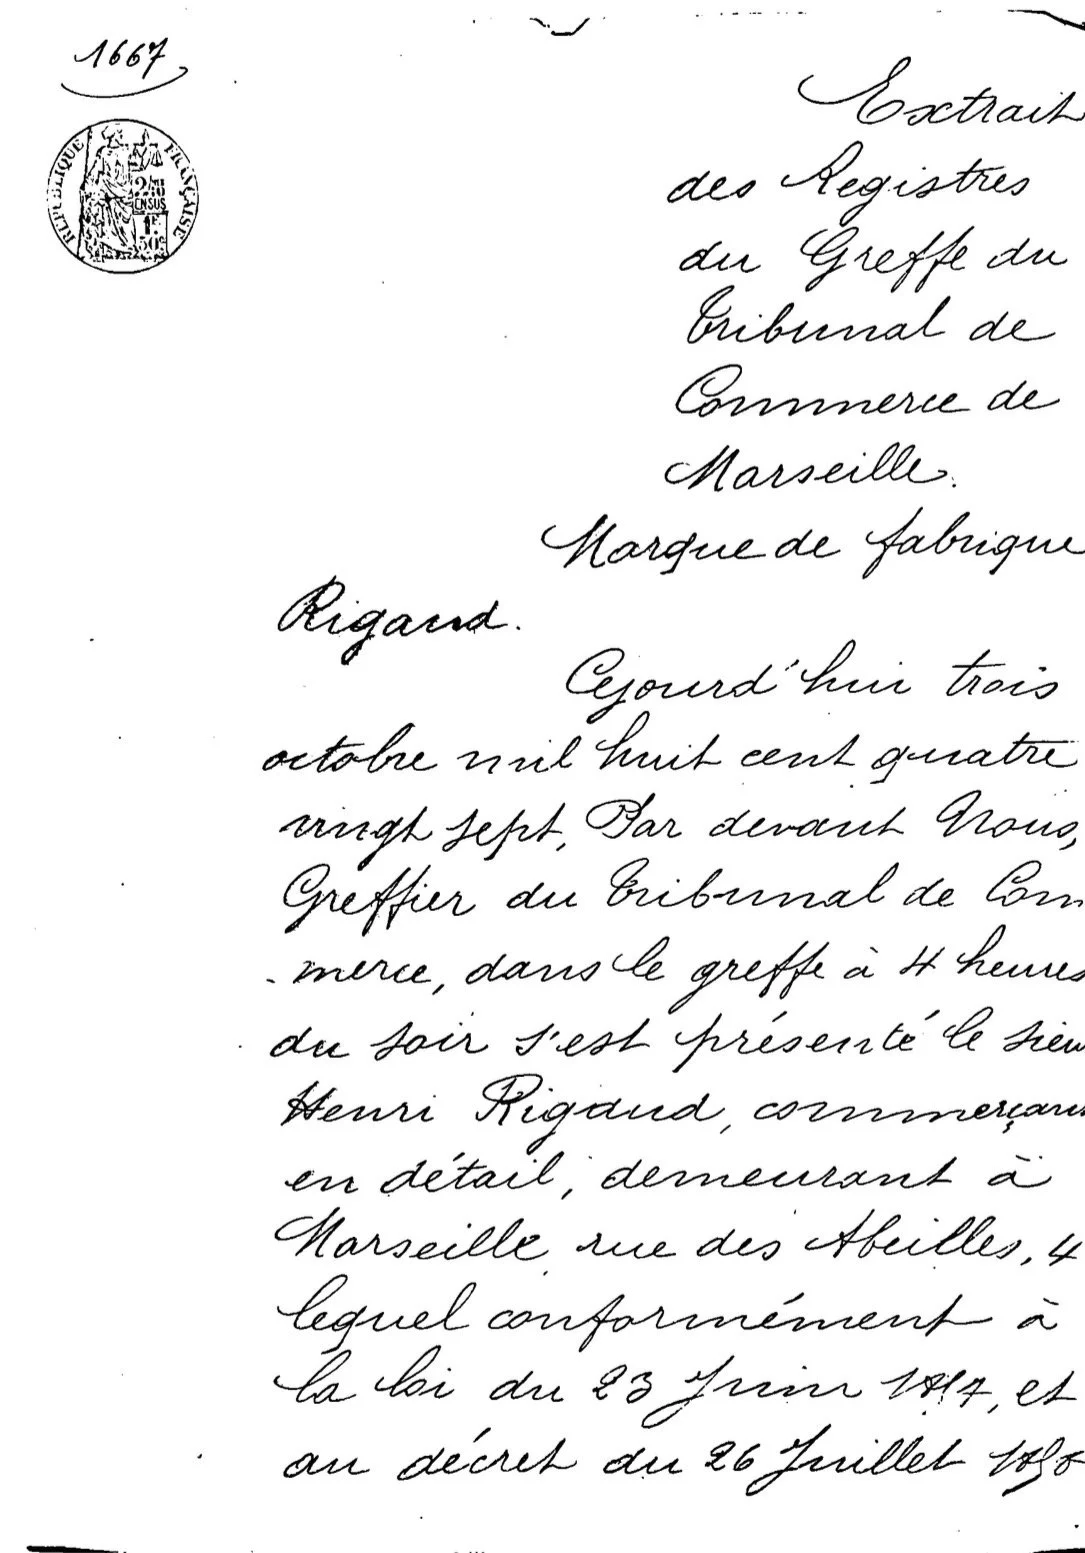 1667
RÉPUBLIQUE FRANÇAISE
EN SUS
1F
50c
Extrait
des Registres
du Greffe du
Tribunal de
Commerce de
Marseille.
Marque de fabrique
Rigaud.
Cejourd'hui trois
octobre mil huit cent quatre
vingt sept, Par devant Nous,
Greffier du Tribunal de Com
-merce, dans le greffe à 4 heures
du soir s'est présenté le sieu
Henri Rigaud, commerçan
en détail, demeurant à
Marseille, rue des Abeilles, 4
lequel conformément à
la loi du 23 Juin 1857, et
au décret du 26 Juillet 1858